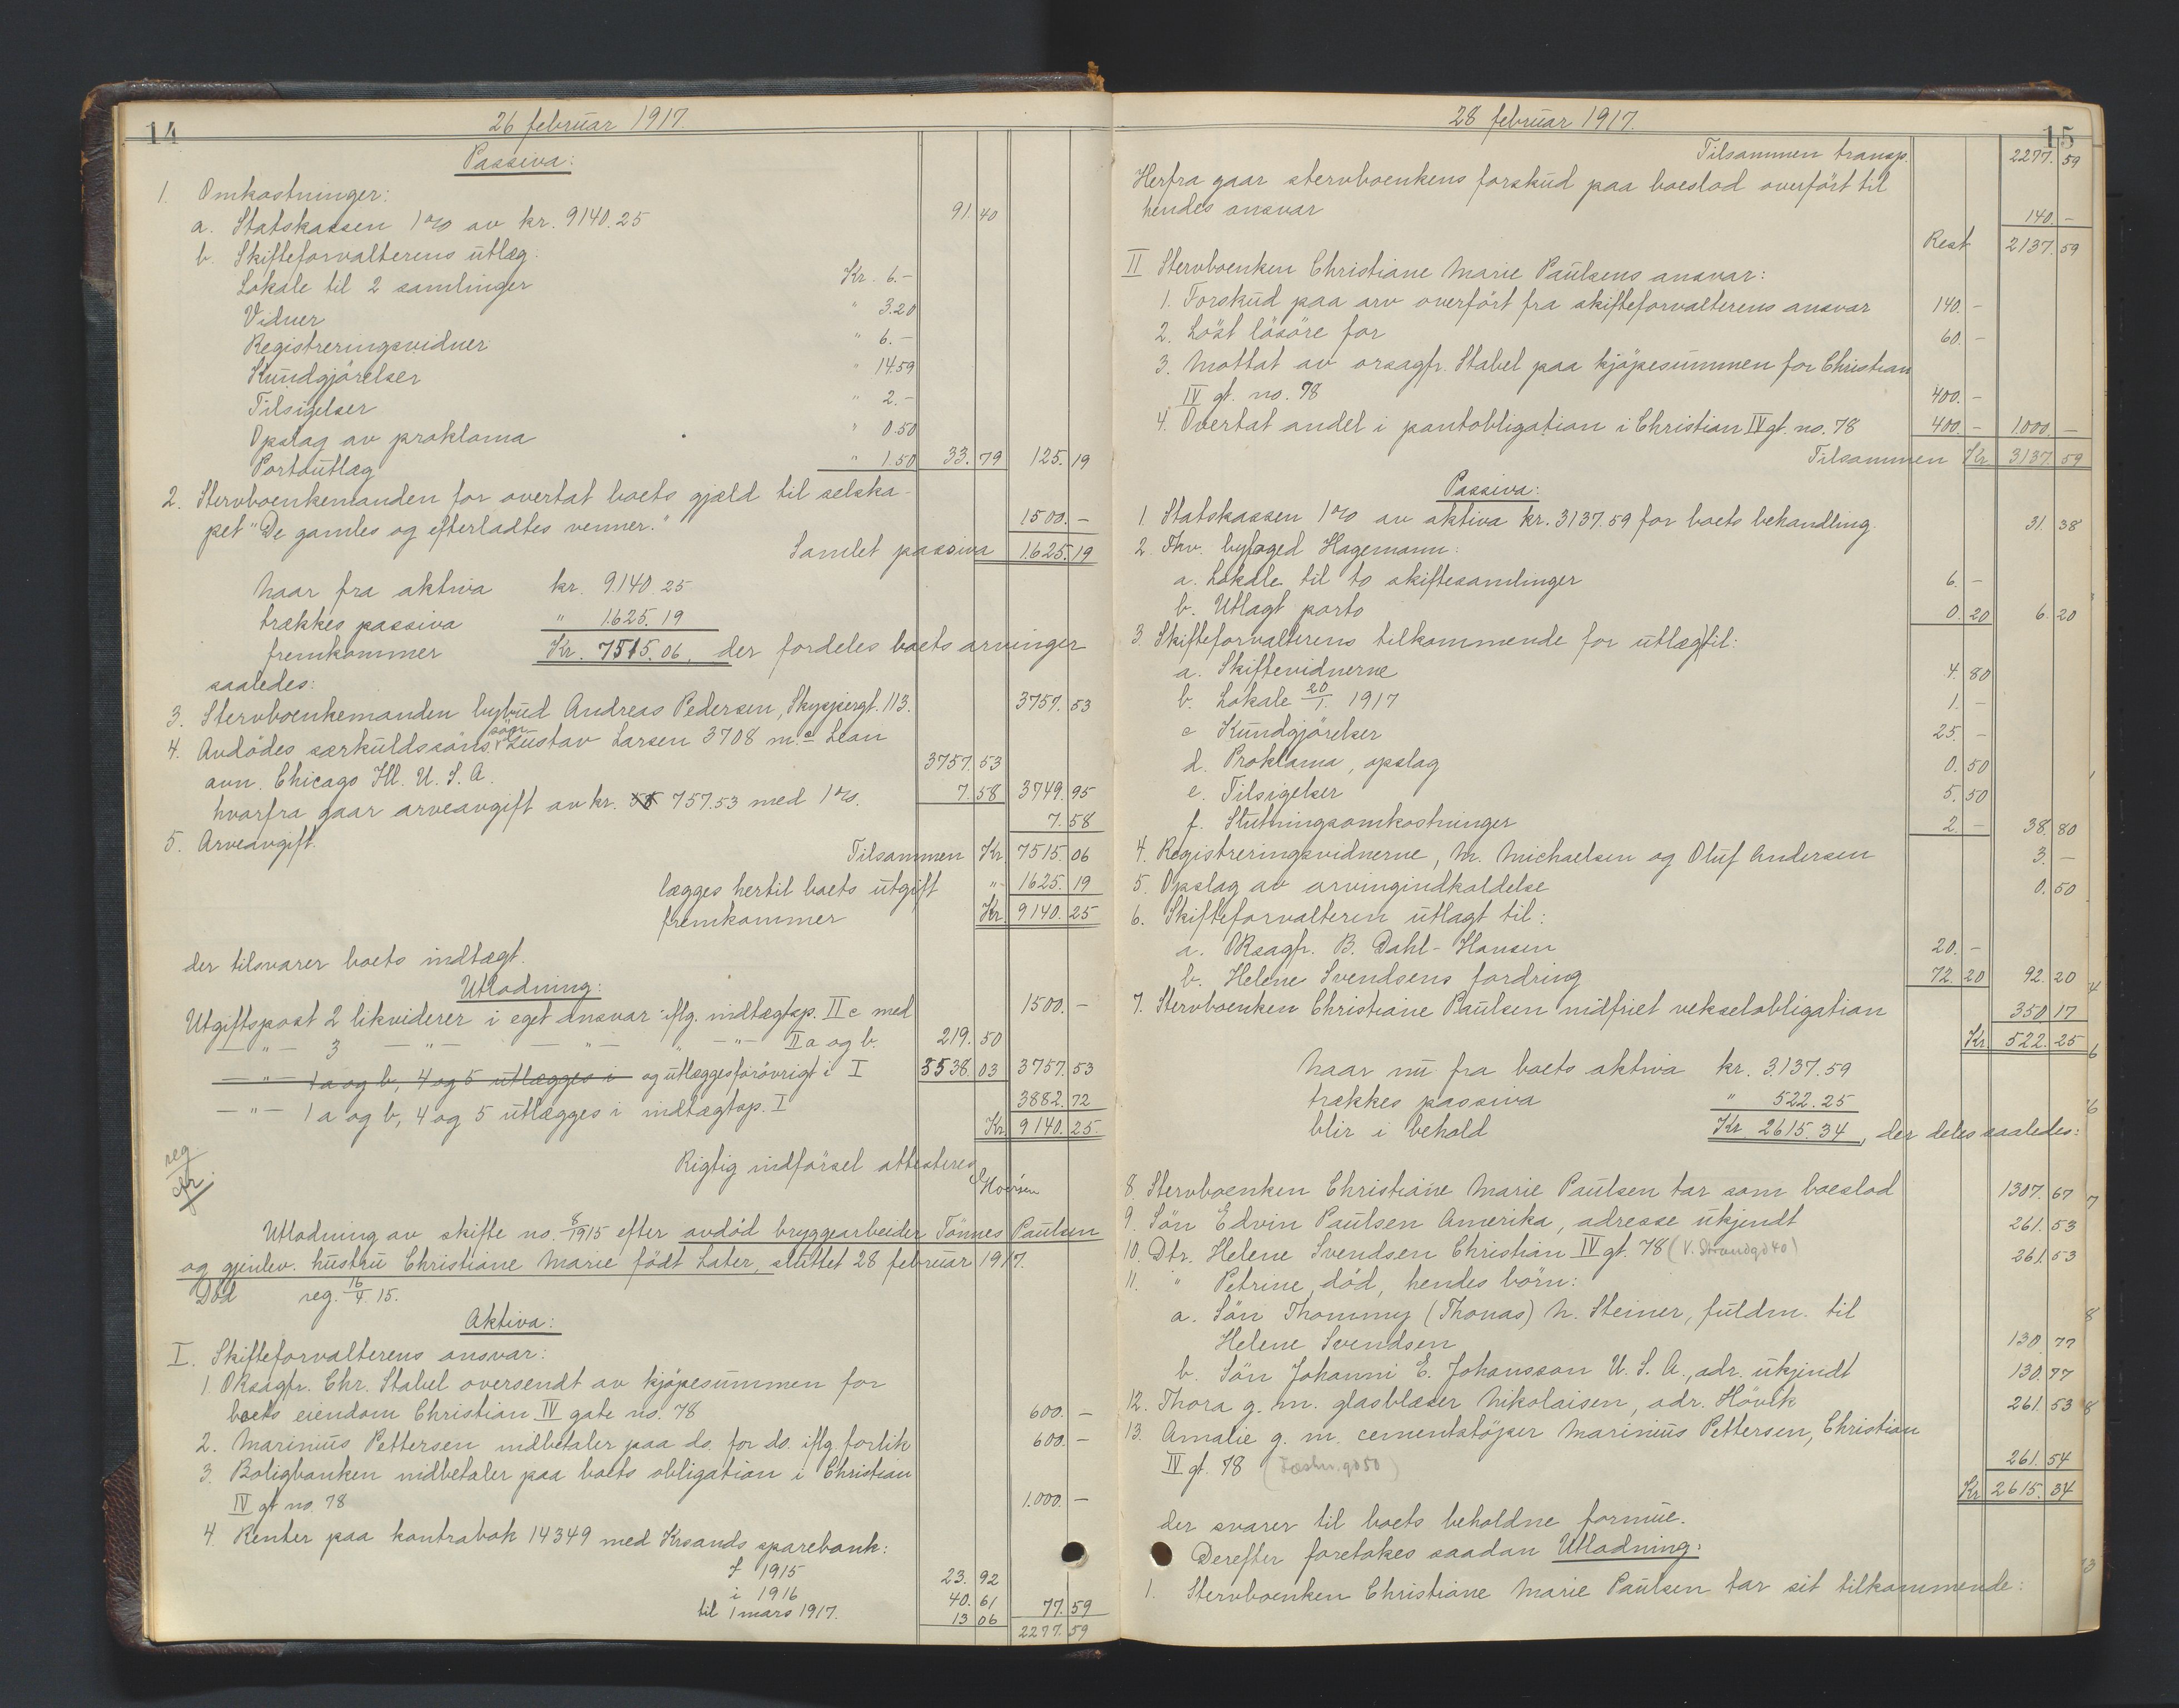 14
26 februar 1917.
Passiva:
1. Omkostninger:
a. Statskassen 1% av kr. 9140.25 91. 40
b. Skifteforvalterens utlæg:
Lokale til 2 samlinger Kr. 6.-
Vidner " 3.20
Registreringsvidner " 6.-
Kundgjørelser " 14.59
Tilsigelser " 2.-
Opslag av proklama " 0.50
Portoutlæg " 1.50 33. 79 125. 19
2. Stervboenkemanden for overtat boets gjæld til selska-
pet "De gamles og efterladtes venner." 1500. -
Samlet passiva 1625. 19
Naar fra aktiva kr. 9140.25
trækkes passiva " 1625.19
fremkommer Kr. 7515.06, der fordeles boets arvinger
saaledes:
3. Stervboenkemanden bybud Andreas Pedersen, Skyspergt. 113. 3757. 53
4. Avdödes særkuldssöns sön Gustav Larsen 3708 mc Lean
avn. Chicago Ill. U. S. A. 3757. 53
hvorfra gaar arveavgift av kr. 757.53 med 1%. 7. 58 3749. 95
5. Arveavgift. 7. 58
Tilsammen Kr. 7515. 06
lægges hertil boets utgift " 1625. 19
fremkommer Kr. 9140. 25
der tilsvarer boets indtægt.
Utlodning:
Utgiftspost 2 likviderer i eget ansvar iflg. indtægtsp. II c med 1500. -
— " — 3 — " — — " — " — " — II a og b. 219. 50
— " — 1 a og b, 4 og 5 utlægges i og utlægges forövrigt i I 3538. 03 3757. 53
— " — 1 a og b, 4 og 5 utlægges i indtægtsp. I 3882. 72
Kr. 9140. 25.
Rigtig indförsel attesteres
reg
Utlodning av skifte no. 8/1915 efter avdöd bryggearbeider Tönnes Paulsen
og gjenlev. hustru Christiane Marie födt Later, sluttet 28 februar 1917.
Död reg. 16/4. 15.
Aktiva:
I. Skifteforvalterens ansvar:
1. Oksagfr. Chr. Stabel oversendt av kjöpesummen for
boets eiendom Christian IV gate no. 78 600. -
2. Marinius Pettersen indbetaler paa do. for do. iflg. forlik 600. -
3. Boligbanken indbetaler paa boets obligation i Christian
IV gt no. 78 1.000. -
4. Renter paa kontrabok 14349 med Krsands sparebank:
I 1915 23. 92
i 1916 40. 61
til 1 mars 1917. 13 06 77. 59
2277. 59
15
28 februar 1917.
Tilsammen transp. 2277. 59
Herfra gaar stervboenkens forskud paa boeslod overfört til
hendes ansvar 140. -
Rest 2137. 59
II Stervboenken Christiane Marie Paulsens ansvar:
1. Forskud paa arv overfört fra skifteforvalterens ansvar 140. -
2. Löst lösöre for 60. -
3. Mottat av orsagfr. Stabel paa kjöpesummen for Christian
IV gt. no. 78 400. -
4. Overtat andel i pantobligation i Christian IV gt. no. 78 400. - 1000. -
Tilsammen Kr 3137. 59
Passiva:
1. Statskassen 1% av aktiva kr. 3137.59 for boets behandling. 31. 38
2. Fhv. byfoged Hagemann:
a. Lokale til to skiftesamlinger 6. -
b. Utlagt porto 0. 20 6. 20
3. Skifteforvalterens tilkommende for utlæg til:
a. Skiftevidnerne 4. 80
b. Lokale 20/1 1917 1. -
c Kundgjörelser 25. -
d. Proklama, opslag 0. 50
e. Tilsigelser 5. 50
f. Slutningsomkostninger 2. - 38. 80
4. Registreringsvidnerne, M. Michaelsen og Oluf Andersen 3. -
5. Opslag av arvingindkaldelse 0. 50
6. Skifteforvalteren utlagt til:
a. Oksagfr. B. Dahl-Hansen 20. -
b. Helene Svendsens fordring 72. 20 92. 20
7. Stervboenken Christiane Paulsen indfriet vekselobligation 350 17
Kr. 522. 25
Naar nu fra boets aktiva kr. 3.137.59
trækkes passiva " 522.25
blir i behold Kr 2615.34, der deles saaledes:
8. Stervboenken Christiane Marie Paulsen tar som boeslod 1307. 67
9. Sön Edvin Paulsen Amerika, adresse ukjendt 261. 53
10. Dtr. Helene Svendsen Christian IV gt. 78 (V. Strandgd 40) 261. 53
11. " Petrine, död, hendes börn:
a. Sön Thommy (Thomas) N. Steiner, fuldm. til
Helene Svendsen 130. 77
b. Sön Johanni E. Johansson U. S. A., adr. ukjendt 130. 77
12. Thora g. m. glasblæser Nikolaisen, adr. Hövik 261. 53
13. Amalie g. m. cementstöper Marinius Pettersen, Christian
IV gt. 78 261. 54
Kr 2615. 34
der svarer til boets beholdne formue.
Derefter foretakes saadan Utlodning:
1. Stervboenken Christiane Marie Paulsen tar sit tilkommende: